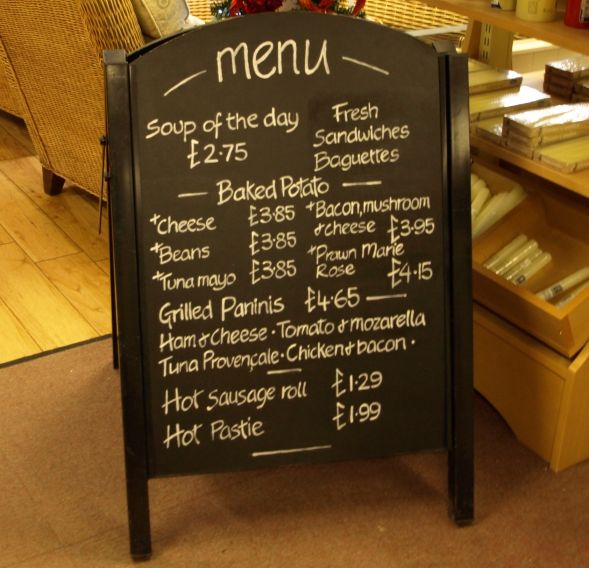 menu
Soup of the day
£2.75
Fresh
Sandwiches
Baguettes
— Baked Potato —
+cheese £3.85
+Beans £3.85
+Tuna mayo £3.85
+Bacon, mushroom
& cheese £3.95
+Prawn Marie
Rose £4.15
Grilled Paninis £4.65 —
Ham & Cheese · Tomato & mozarella
Tuna Provençale · Chicken & bacon ·
Hot Sausage roll £1.29
Hot Pastie £1.99